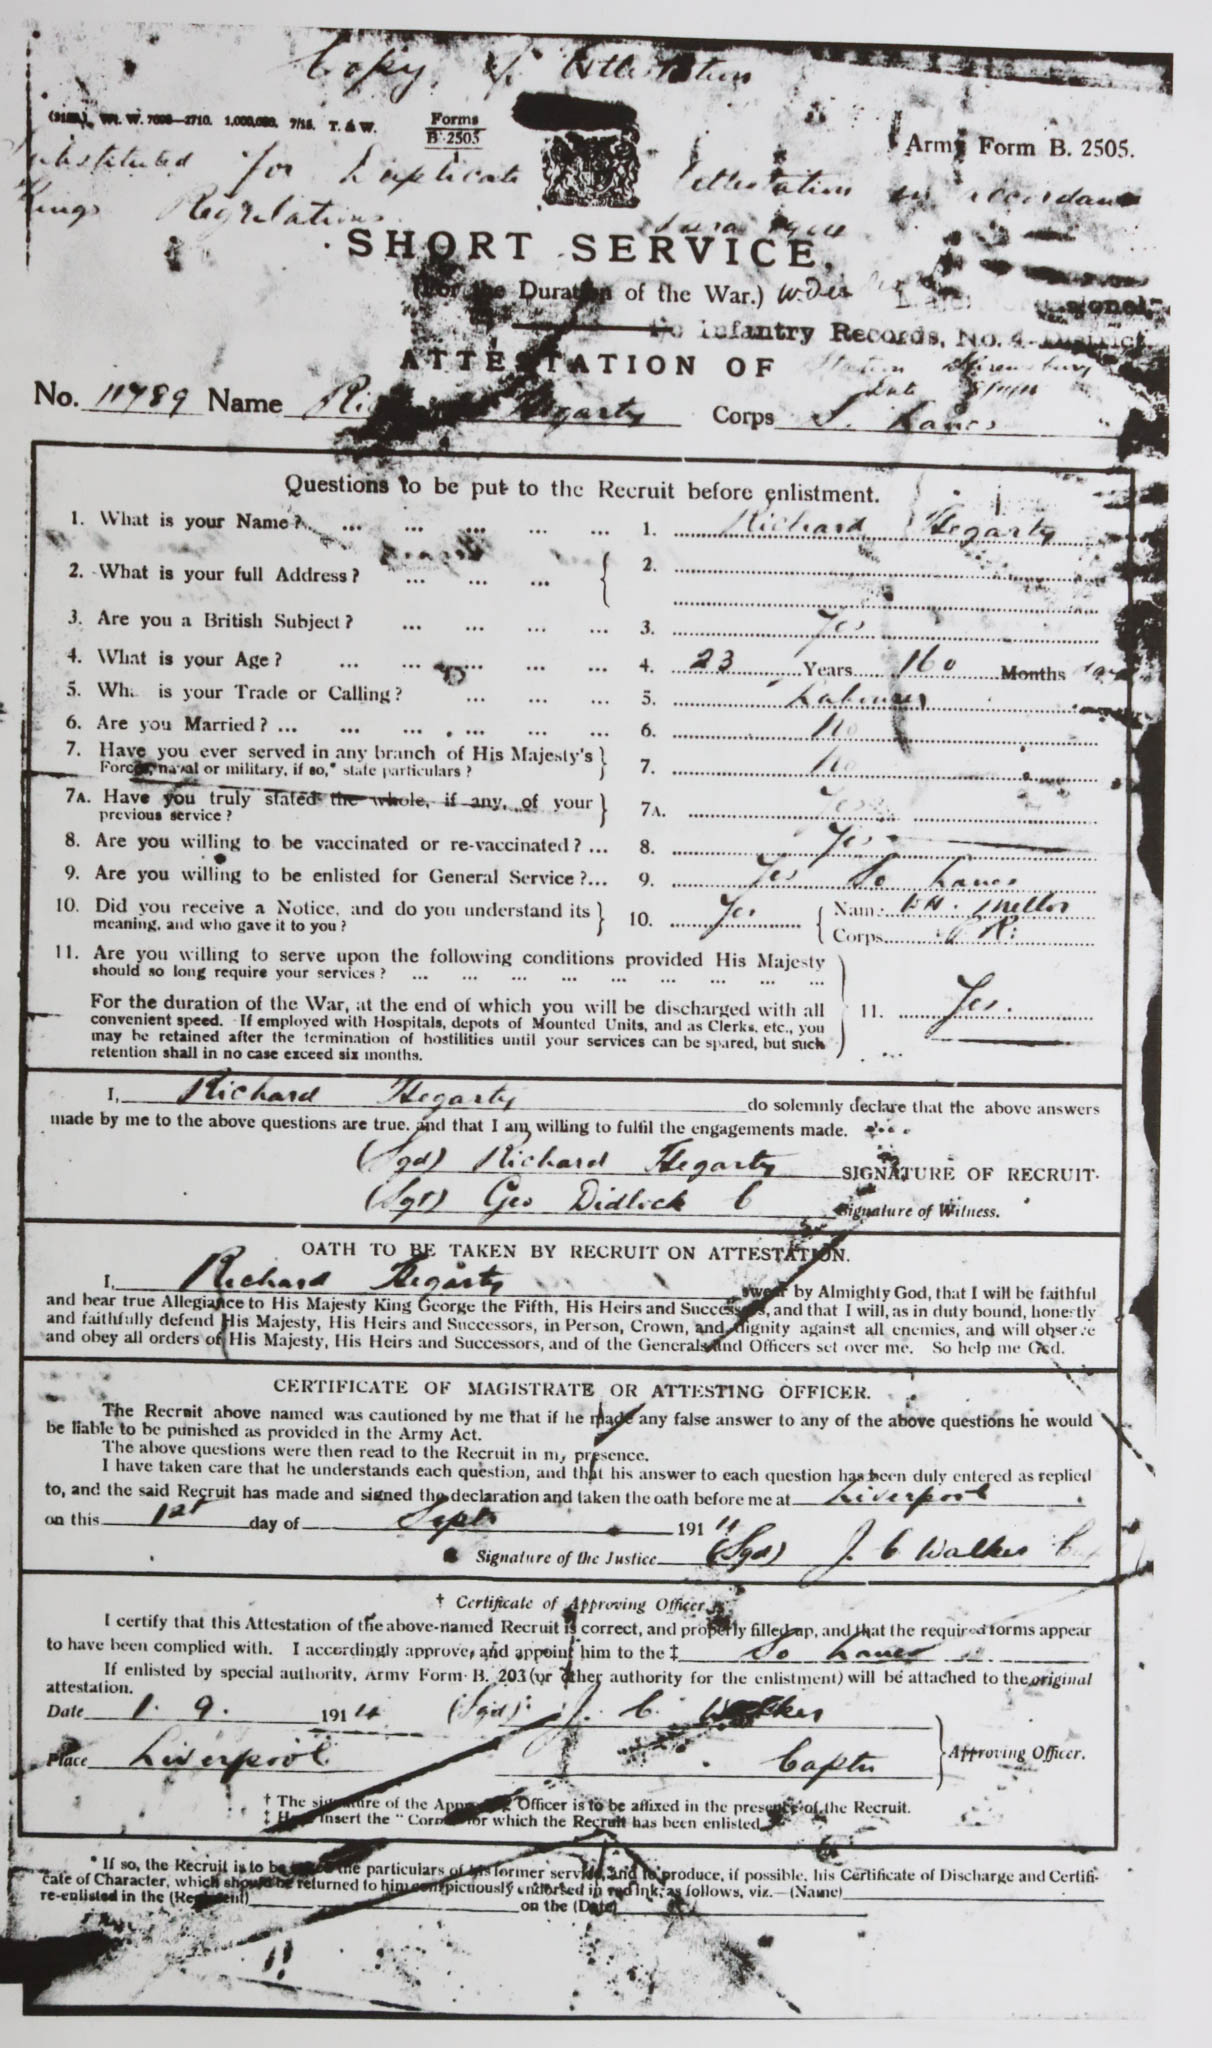 Copy of Attestation
Wt. W. 7098—2710. 1,000,000. 7/15. T. & W. Forms B. 2505 Army Form B. 2505.
substituted for Duplicate Attestation in accordance
Kings Regulations.
SHORT SERVICE.
(For the Duration of the War.)
Infantry Records, No. 4 District.
ATTESTATION OF Station Shrewsbury
Date
No. 11789 Name Hegarty Corps S. Lancs
Questions to be put to the Recruit before enlistment.
1. What is your Name? ... ... ... ... ... 1. Richard Hegarty
2. What is your full Address? ... ... ... 2.
3. Are you a British Subject? ... ... ... ... 3. Yes
4. What is your Age? ... ... ... ... ... 4. 23 Years 160 Months
5. What is your Trade or Calling? ... ... ... 5. Labourer
6. Are you Married? ... ... ... ... ... ... 6. No
7. Have you ever served in any branch of His Majesty's
Forces, naval or military, if so,* state particulars? 7. No
7A. Have you truly stated the whole, if any, of your
previous service? 7A. Yes
8. Are you willing to be vaccinated or re-vaccinated? ... 8. Yes
9. Are you willing to be enlisted for General Service? ... 9. Yes So Lancs
10. Did you receive a Notice, and do you understand its
meaning, and who gave it to you? 10. Yes Name Mellor
Corps
11. Are you willing to serve upon the following conditions provided His Majesty
should so long require your services? ... ... ... ... ... ... ... ...
For the duration of the War, at the end of which you will be discharged with all
convenient speed. If employed with Hospitals, depots of Mounted Units, and as Clerks, etc., you
may be retained after the termination of hostilities until your services can be spared, but such
retention shall in no case exceed six months. 11. Yes.
I, Richard Hegarty do solemnly declare that the above answers
made by me to the above questions are true, and that I am willing to fulfil the engagements made.
(Sgd) Richard Hegarty SIGNATURE OF RECRUIT.
(Sgd) Geo Didlick Signature of Witness.
OATH TO BE TAKEN BY RECRUIT ON ATTESTATION.
I, Richard Hegarty swear by Almighty God, that I will be faithful
and bear true Allegiance to His Majesty King George the Fifth, His Heirs and Successors, and that I will, as in duty bound, honestly
and faithfully defend His Majesty, His Heirs and Successors, in Person, Crown, and dignity against all enemies, and will observe
and obey all orders of His Majesty, His Heirs and Successors, and of the Generals and Officers set over me. So help me God.
CERTIFICATE OF MAGISTRATE OR ATTESTING OFFICER.
The Recruit above named was cautioned by me that if he made any false answer to any of the above questions he would
be liable to be punished as provided in the Army Act.
The above questions were then read to the Recruit in my presence.
I have taken care that he understands each question, and that his answer to each question has been duly entered as replied
to, and the said Recruit has made and signed the declaration and taken the oath before me at Liverpool
on this 1st day of Septr 191
Signature of the Justice (Sgd) J. C Walker
† Certificate of Approving Officer.
I certify that this Attestation of the above-named Recruit is correct, and properly filled up, and that the required forms appear
to have been complied with. I accordingly approve, and appoint him to the ‡ So Lancs
If enlisted by special authority, Army Form B. 203 (or other authority for the enlistment) will be attached to the original
attestation.
Date 1. 9. 1914 (Sgd) J. C. Walker
Place Liverpool Captn Approving Officer.
† The signature of the Approving Officer is to be affixed in the presence of the Recruit.
‡ Here insert the "Corps" for which the Recruit has been enlisted.
* If so, the Recruit is to be asked the particulars of his former service, and to produce, if possible, his Certificate of Discharge and Certifi-
cate of Character, which should be returned to him conspicuously endorsed in red ink, as follows, viz.—(Name)
re-enlisted in the (Regiment) on the (Date)